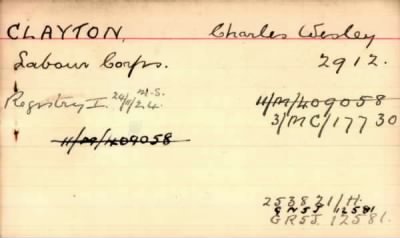 CLAYTON, Charles Wesley
Labour Corps. 2912.
Registry I. 24/11/24. M.S. 11/M/409058
3/MC/17730
11/M/409058
253821/H.
GRSS 12581
GRSS. 12581.